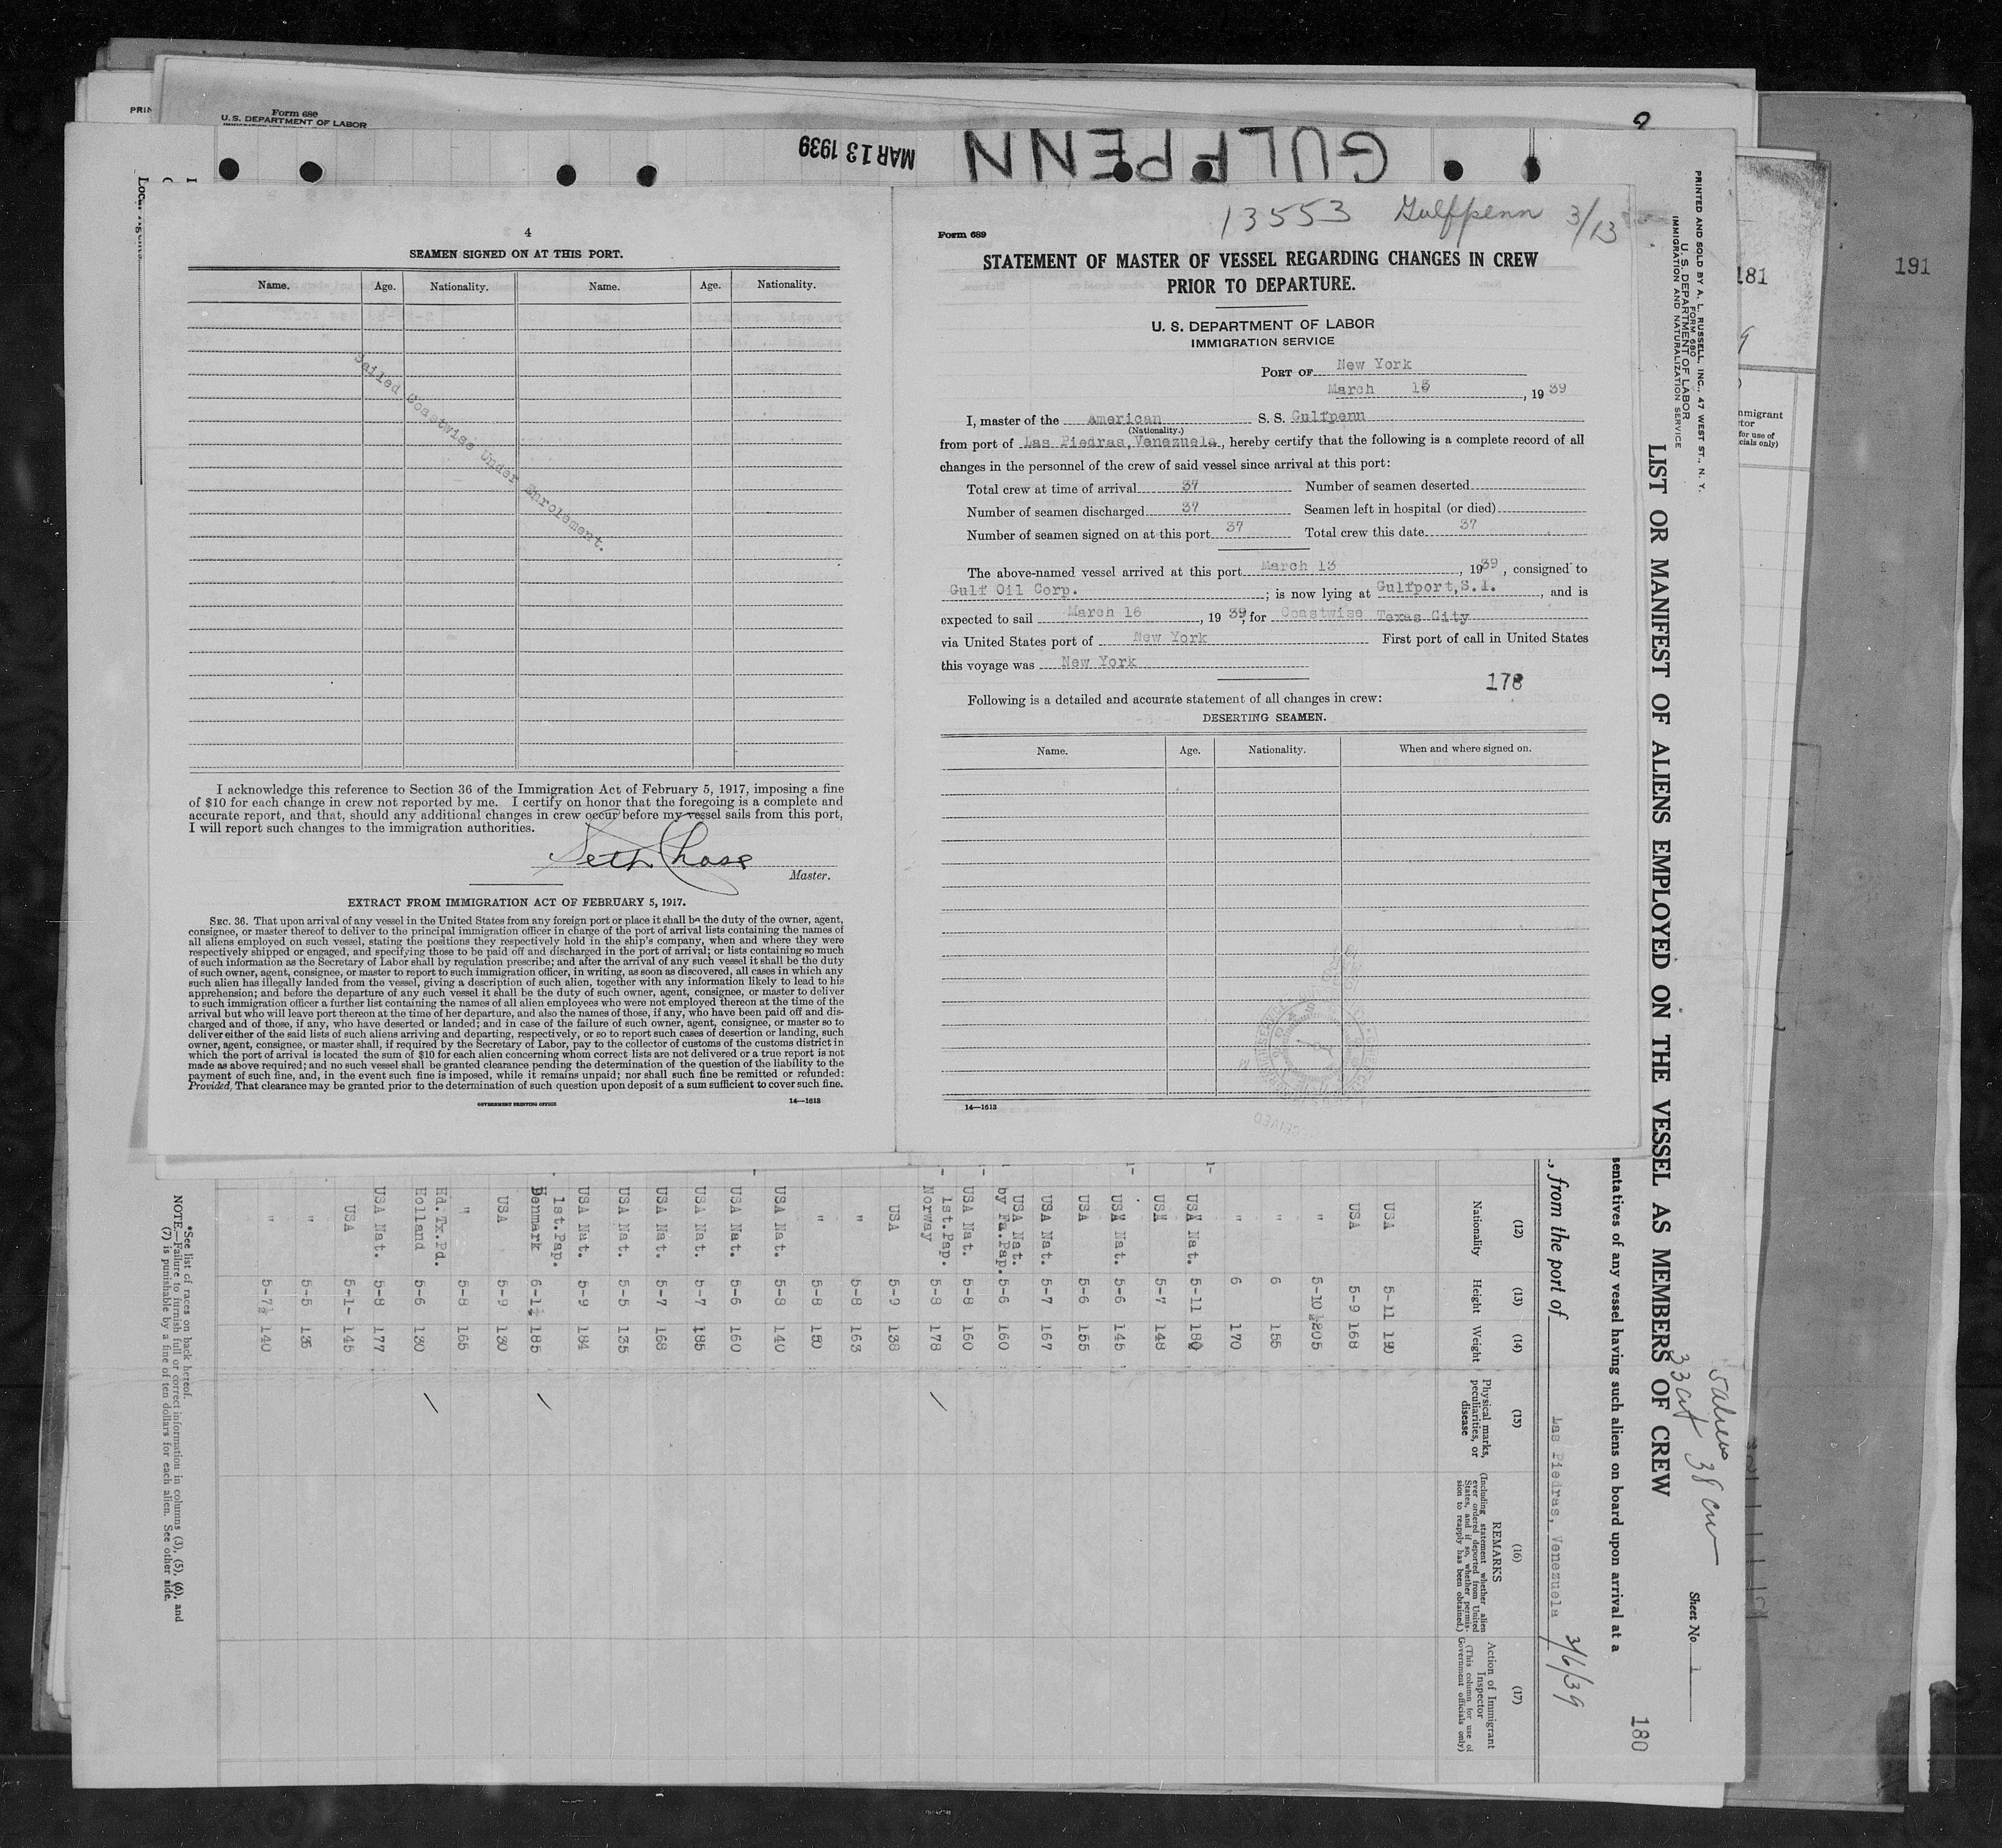 PRIN
Form 680
U. S. DEPARTMENT OF LABOR
MAR 13 1939
GULFPENN
4
SEAMEN SIGNED ON AT THIS PORT.
Name. Age. Nationality. Name. Age. Nationality.
Sailed Coastwise Under Enrolement.
I acknowledge this reference to Section 36 of the Immigration Act of February 5, 1917, imposing a fine
of $10 for each change in crew not reported by me. I certify on honor that the foregoing is a complete and
accurate report, and that, should any additional changes in crew occur before my vessel sails from this port,
I will report such changes to the immigration authorities.
Seth Chase
Master.
EXTRACT FROM IMMIGRATION ACT OF FEBRUARY 5, 1917.
SEC. 36. That upon arrival of any vessel in the United States from any foreign port or place it shall be the duty of the owner, agent,
consignee, or master thereof to deliver to the principal immigration officer in charge of the port of arrival lists containing the names of
all aliens employed on such vessel, stating the positions they respectively hold in the ship's company, when and where they were
respectively shipped or engaged, and specifying those to be paid off and discharged in the port of arrival; or lists containing so much
of such information as the Secretary of Labor shall by regulation prescribe; and after the arrival of any such vessel it shall be the duty
of such owner, agent, consignee, or master to report to such immigration officer, in writing, as soon as discovered, all cases in which any
such alien has illegally landed from the vessel, giving a description of such alien, together with any information likely to lead to his
apprehension; and before the departure of any such vessel it shall be the duty of such owner, agent, consignee, or master to deliver
to such immigration officer a further list containing the names of all alien employees who were not employed thereon at the time of the
arrival but who will leave port thereon at the time of her departure, and also the names of those, if any, who have been paid off and dis-
charged and of those, if any, who have deserted or landed; and in case of the failure of such owner, agent, consignee, or master so to
deliver either of the said lists of such aliens arriving and departing, respectively, or so to report such cases of desertion or landing, such
owner, agent, consignee, or master shall, if required by the Secretary of Labor, pay to the collector of customs of the customs district in
which the port of arrival is located the sum of $10 for each alien concerning whom correct lists are not delivered or a true report is not
made as above required; and no such vessel shall be granted clearance pending the determination of the question of the liability to the
payment of such fine, and, in the event such fine is imposed, while it remains unpaid; nor shall such fine be remitted or refunded:
Provided, That clearance may be granted prior to the determination of such question upon deposit of a sum sufficient to cover such fine.
GOVERNMENT PRINTING OFFICE 14—1613
13553 Gulfpenn 3/13
Form 689
STATEMENT OF MASTER OF VESSEL REGARDING CHANGES IN CREW
PRIOR TO DEPARTURE.
U. S. DEPARTMENT OF LABOR
IMMIGRATION SERVICE
PORT OF New York
March 13, 1939
I, master of the American S. S. Gulfpenn
(Nationality.)
from port of Las Piedras, Venezuela, hereby certify that the following is a complete record of all
changes in the personnel of the crew of said vessel since arrival at this port:
Total crew at time of arrival 37 Number of seamen deserted
Number of seamen discharged 37 Seamen left in hospital (or died)
Number of seamen signed on at this port 37 Total crew this date 37
The above-named vessel arrived at this port March 13, 1939, consigned to
Gulf Oil Corp.; is now lying at Gulfport, S.I., and is
expected to sail March 16, 1939, for Coastwise Texas City
via United States port of New York First port of call in United States
this voyage was New York
178
Following is a detailed and accurate statement of all changes in crew:
DESERTING SEAMEN.
Name. Age. Nationality. When and where signed on.
RECEIVED
14—1613
PRINTED AND SOLD BY A. L. RUSSELL, INC., 47 WEST ST., N. Y.
FORM 680
U. S. DEPARTMENT OF LABOR
IMMIGRATION AND NATURALIZATION SERVICE
LIST OR MANIFEST OF ALIENS EMPLOYED ON THE VESSEL AS MEMBERS OF CREW
5 aliens
33 cit 38 crew
Sheet No. 1
180
sentatives of any vessel having such aliens on board upon arrival at a
, from the port of Las Piedras, Venezuela 3/6/39
(12) (13) (14) (15) (16) (17)
Nationality Height Weight
Physical marks, peculiarities, or disease
REMARKS
(Including statement whether alien
ever ordered deported from United
States, and if so, whether permis-
sion to reapply has been obtained.)
Action of Immigrant
Inspector
(This column for use of
Government officials only)
USA 5-11
USA 5-9 168
" 5-10½ 205
" 6 155
" 6 170
USA Nat. 5-11 180
USA 5-7 148
USA Nat. 5-6 145
USA 5-6 155
USA Nat. 5-7 167
USA Nat. by Fa.Pap. 5-6 160
USA Nat. 5-8 160
1st.Pap. Norway 5-8 178
USA 5-9 138
" 5-8 163
" 5-8 150
USA Nat. 5-8 140
USA Nat. 5-6 160
USA Nat. 5-7 185
USA Nat. 5-7 168
USA Nat. 5-5 135
USA Nat. 5-9 184
1st.Pap. Denmark 6-1½ 185
USA 5-9 130
" 5-8 165
Hd.Tx.Pd. Holland 5-6 130
USA Nat. 5-8 177
USA 5-1- 145
" 5-5
" 5-7½ 140
*See list of races on back hereof.
NOTE.—Failure to furnish full or correct information in columns (3), (5), (6), and
(7) is punishable by a fine of ten dollars for each alien. See other side.
181
191
mmigrant
ctor
for use of
cials only)